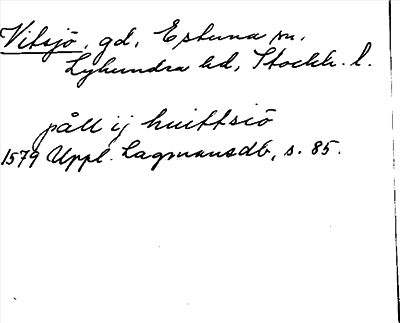 Vitsjö, gd, Estuna sn.
Lyhundra hd, Stockh. l.
påll ij huittsiö
1579 Uppl. Lagmansdb, s. 85.